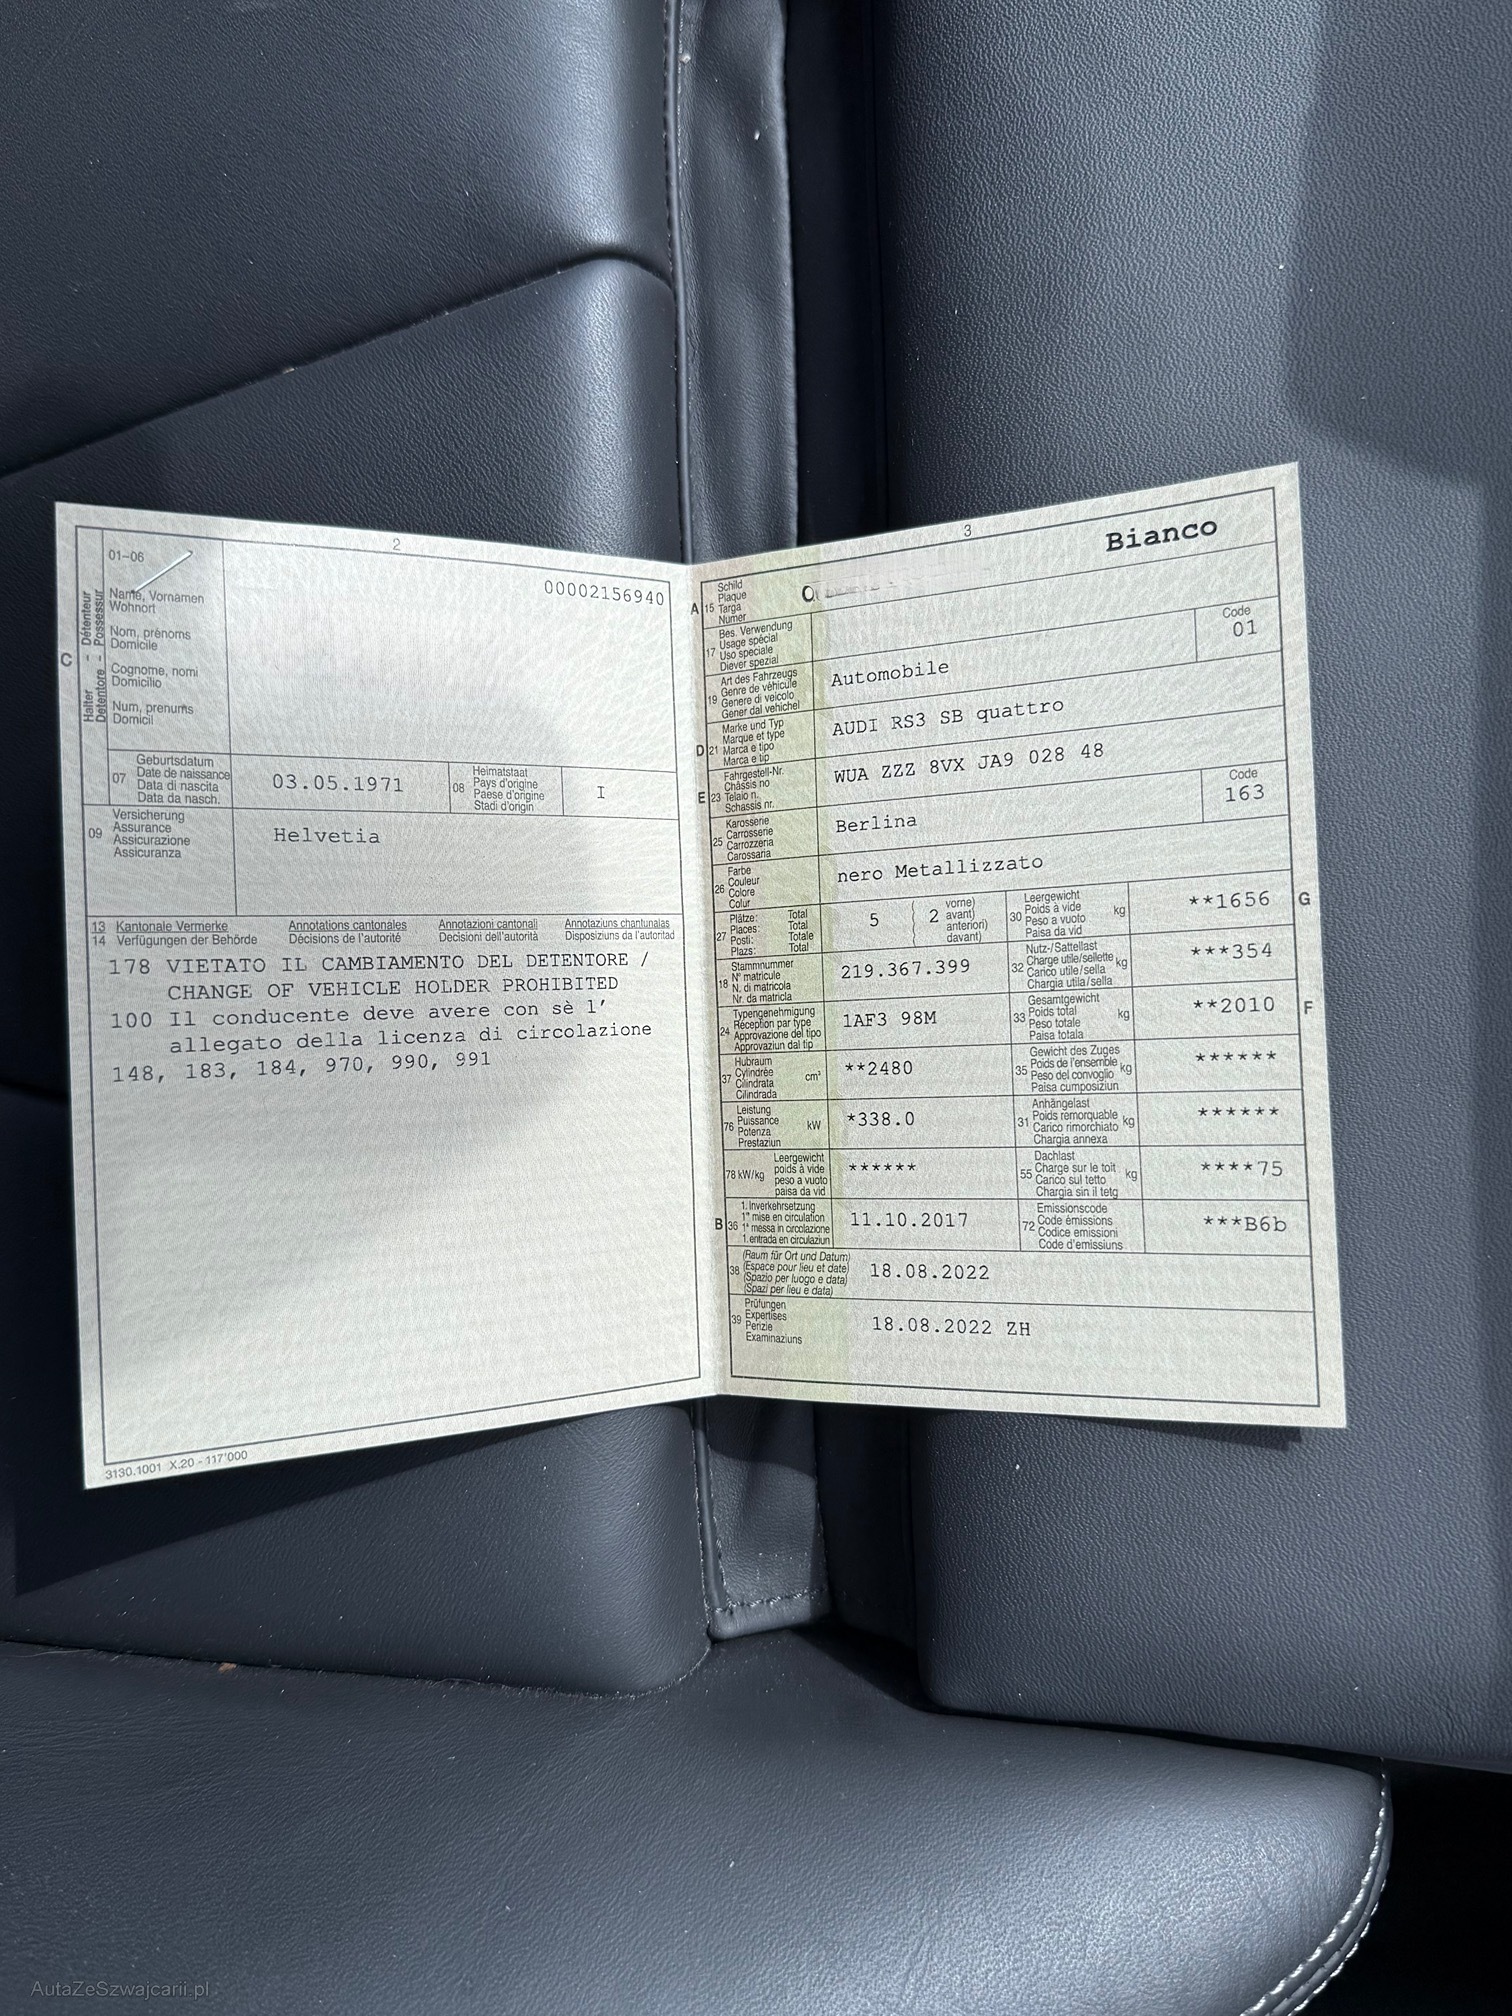 2
01–06
00002156940
C
Halter - Détenteur
Detentore - Possessur
Name, Vornamen
Wohnort
Nom, prénoms
Domicile
Cognome, nomi
Domicilio
Num, prenums
Domicil
07
Geburtsdatum
Date de naissance
Data di nascita
Data da nasch.
03.05.1971
08
Heimatstaat
Pays d'origine
Paese d'origine
Stadi d'origin
I
09
Versicherung
Assurance
Assicurazione
Assicuranza
Helvetia
13 Kantonale Vermerke Annotations cantonales Annotazioni cantonali Annotaziuns chantunalas
14 Verfügungen der Behörde Décisions de l'autorité Decisioni dell'autorità Disposiziuns da l'autoritad
178 VIETATO IL CAMBIAMENTO DEL DETENTORE /
CHANGE OF VEHICLE HOLDER PROHIBITED
100 Il conducente deve avere con sè l'
allegato della licenza di circolazione
148, 183, 184, 970, 990, 991
3130.1001 X.20 - 117'000
3
Bianco
A 15
Schild
Plaque
Targa
Numer
17
Bes. Verwendung
Usage spécial
Uso speciale
Diever spezial
Code
01
19
Art des Fahrzeugs
Genre de véhicule
Genere di veicolo
Gener dal vehichel
Automobile
D 21
Marke und Typ
Marque et type
Marca e tipo
Marca e tip
AUDI RS3 SB quattro
E 23
Fahrgestell-Nr.
Châssis no
Telaio n.
Schassis nr.
WUA ZZZ 8VX JA9 028 48
25
Karosserie
Carrosserie
Carrozzeria
Carossaria
Berlina
Code
163
26
Farbe
Couleur
Colore
Colur
nero Metallizzato
27
Plätze: Total
Places: Total
Posti: Totale
Plazs: Total
5
2
vorne)
avant)
anteriori)
davant)
30
Leergewicht
Poids à vide
Peso a vuoto
Paisa da vid
kg
**1656
G
18
Stammnummer
N° matricule
N. di matricola
Nr. da matricla
219.367.399
32
Nutz-/Sattellast
Charge utile/sellette
Carico utile/sella
Chargia utila/sella
kg
***354
24
Typengenehmigung
Réception par type
Approvazione del tipo
Approvaziun dal tip
1AF3 98M
33
Gesamtgewicht
Poids total
Peso totale
Paisa totala
kg
**2010
F
37
Hubraum
Cylindrée
Cilindrata
Cilindrada
cm³
**2480
35
Gewicht des Zuges
Poids de l'ensemble
Peso del convoglio
Paisa cumposiziun
kg
******
76
Leistung
Puissance
Potenza
Prestaziun
kW
*338.0
31
Anhängelast
Poids remorquable
Carico rimorchiato
Chargia annexa
kg
******
78 kW/kg
Leergewicht
poids à vide
peso a vuoto
paisa da vid
******
55
Dachlast
Charge sur le toit
Carico sul tetto
Chargia sin il tetg
kg
****75
B 36
1. Inverkehrsetzung
1re mise en circulation
1a messa in circolazione
1. entrada en circulaziun
11.10.2017
72
Emissionscode
Code émissions
Codice emissioni
Code d'emissiuns
***B6b
38
(Raum für Ort und Datum)
(Espace pour lieu et date)
(Spazio per luogo e data)
(Spazi per lieu e data)
18.08.2022
39
Prüfungen
Expertises
Perizie
Examinaziuns
18.08.2022 ZH
AutaZeSzwajcarii.pl